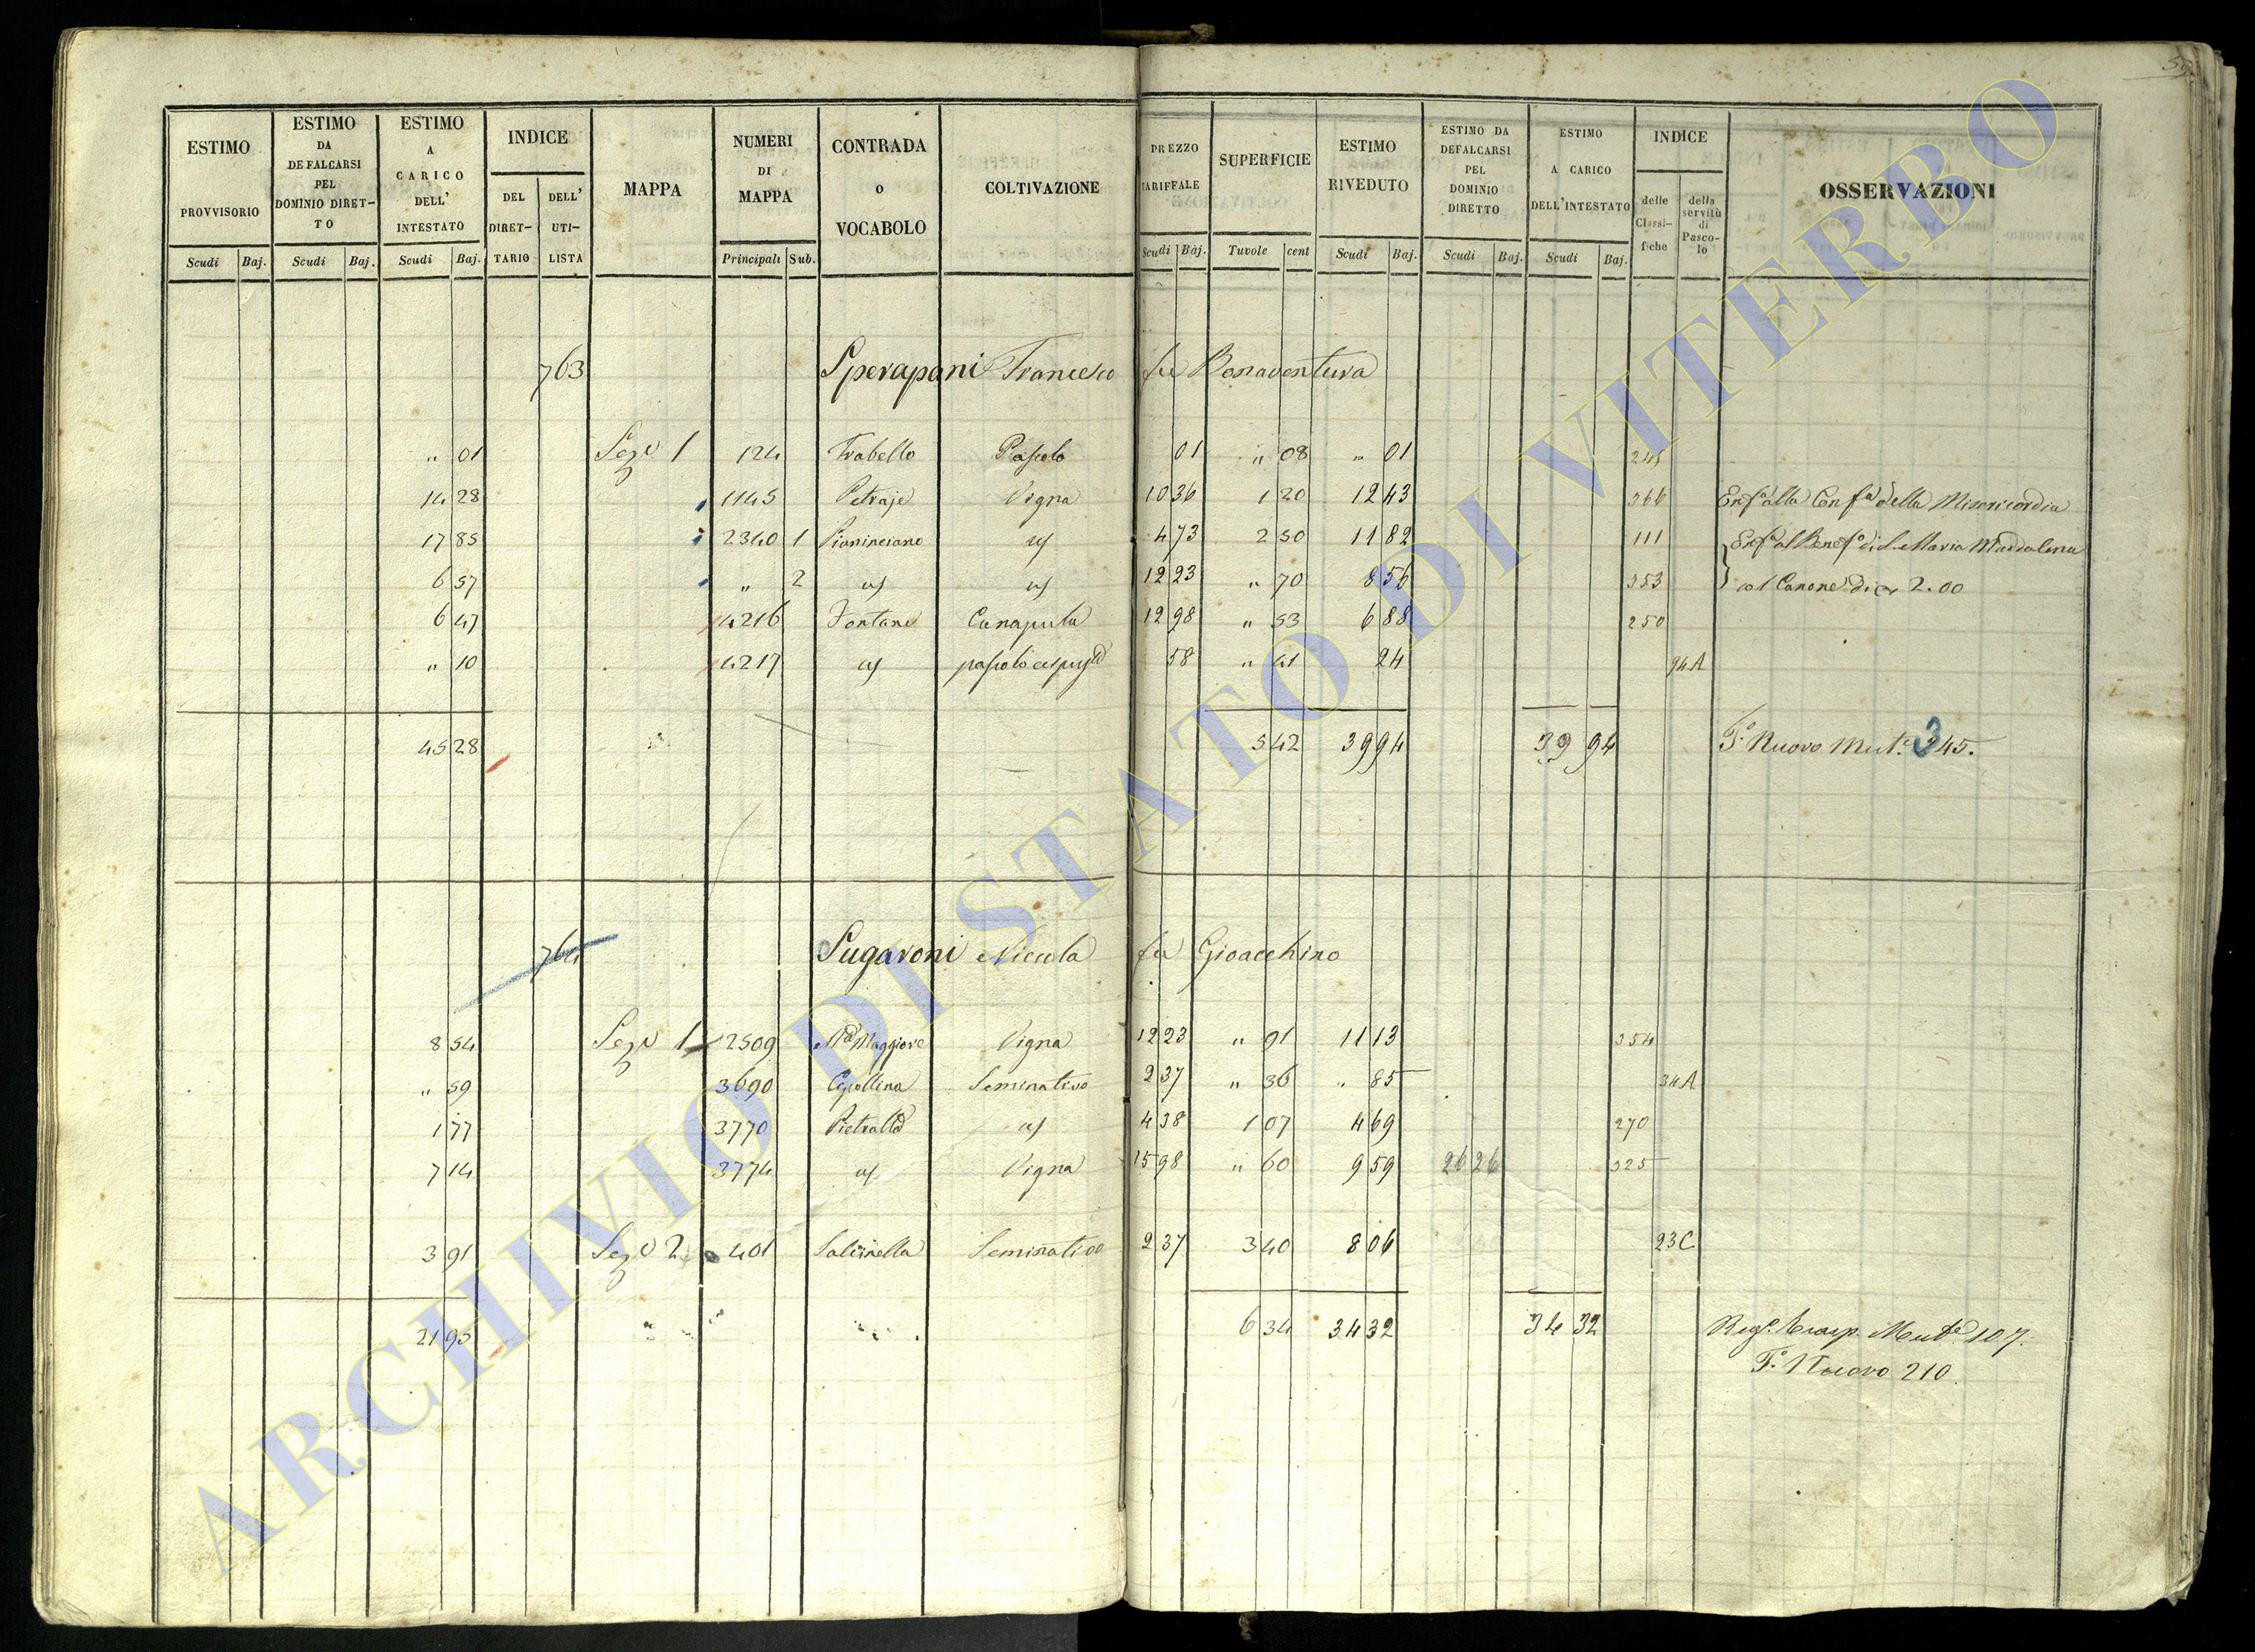 59
ESTIMO PROVVISORIO Scudi Baj.
ESTIMO DA DEFALCARSI PEL DOMINIO DIRET-TO Scudi Baj.
ESTIMO A CARICO DELL' INTESTATO Scudi Baj.
INDICE DEL DIRET-TARIO DELL' UTI-LISTA
MAPPA
NUMERI DI MAPPA Principali Sub.
CONTRADA o VOCABOLO
COLTIVAZIONE
PREZZO TARIFFALE Scudi Baj.
SUPERFICIE Tavole cent
ESTIMO RIVEDUTO Scudi Baj.
ESTIMO DA DEFALCARSI PEL DOMINIO DIRETTO Scudi Baj.
ESTIMO A CARICO DELL'INTESTATO Scudi Baj.
INDICE delle Classi-fiche della servitù di Pasco-lo
OSSERVAZIONI
763 Sperapani Francesco fu Bonaventura
" 01 Seze 1 124 Trabello Pascolo 01 " 08 " 01 245
14 28 1145 Petraje Vigna 10 36 1 20 12 43 366 Enfa alla Confa della Misericordia
17 85 2340 1 Pianinciano us 4 73 2 50 11 82 111 Enfa al Benefo di S. Maria Maddalena
6 57 " 2 us us 12 23 " 70 8 56 353 col Canone di 2.00
6 47 4216 Fontane Canapula 12 98 " 53 6 88 250
" 10 4217 us pascolo cespugto 58 " 41 24 94 A
45 28 5 42 39 94 39 94 To Nuovo Muta 345.
764 Sugaroni Nicola fu Gioacchino
8 54 Seze 1 2509 Na Maggiore Vigna 12 23 " 91 11 13 354
" 59 3690 Cipollina Seminativo 2 37 " 36 " 85 34 A
1 77 3770 Pietralta us 4 38 1 07 4 69 270
7 14 3774 us Vigna 15 98 " 60 9 59 26 26 325
3 91 Seze 2 401 Salcinella Seminativo 2 37 3 40 8 06 23 C
21 95 6 34 34 32 34 32 Rege. trasp. Mute 107.
To Nuovo 210
ARCHIVIO DI STATO DI VITERBO